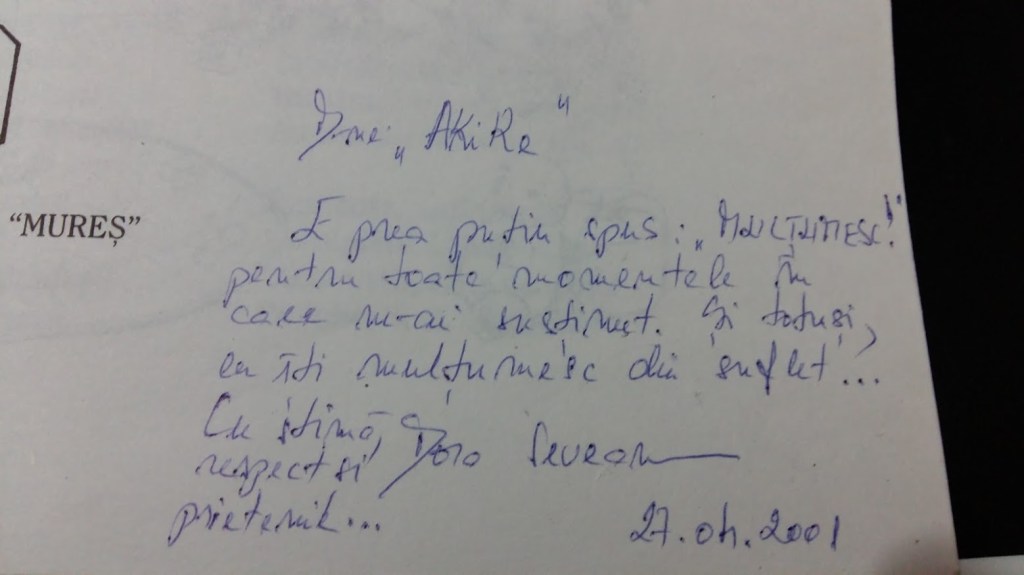 Dnei „AKiRa”
“MUREȘ”
E prea puțin spus: „MULȚUMESC!”
pentru toate momentele în
care m-ai susținut. Și totuși,
eu îți mulțumesc din suflet...
Cu stimă,
respect și
prietenie...
Dora
27.04.2001